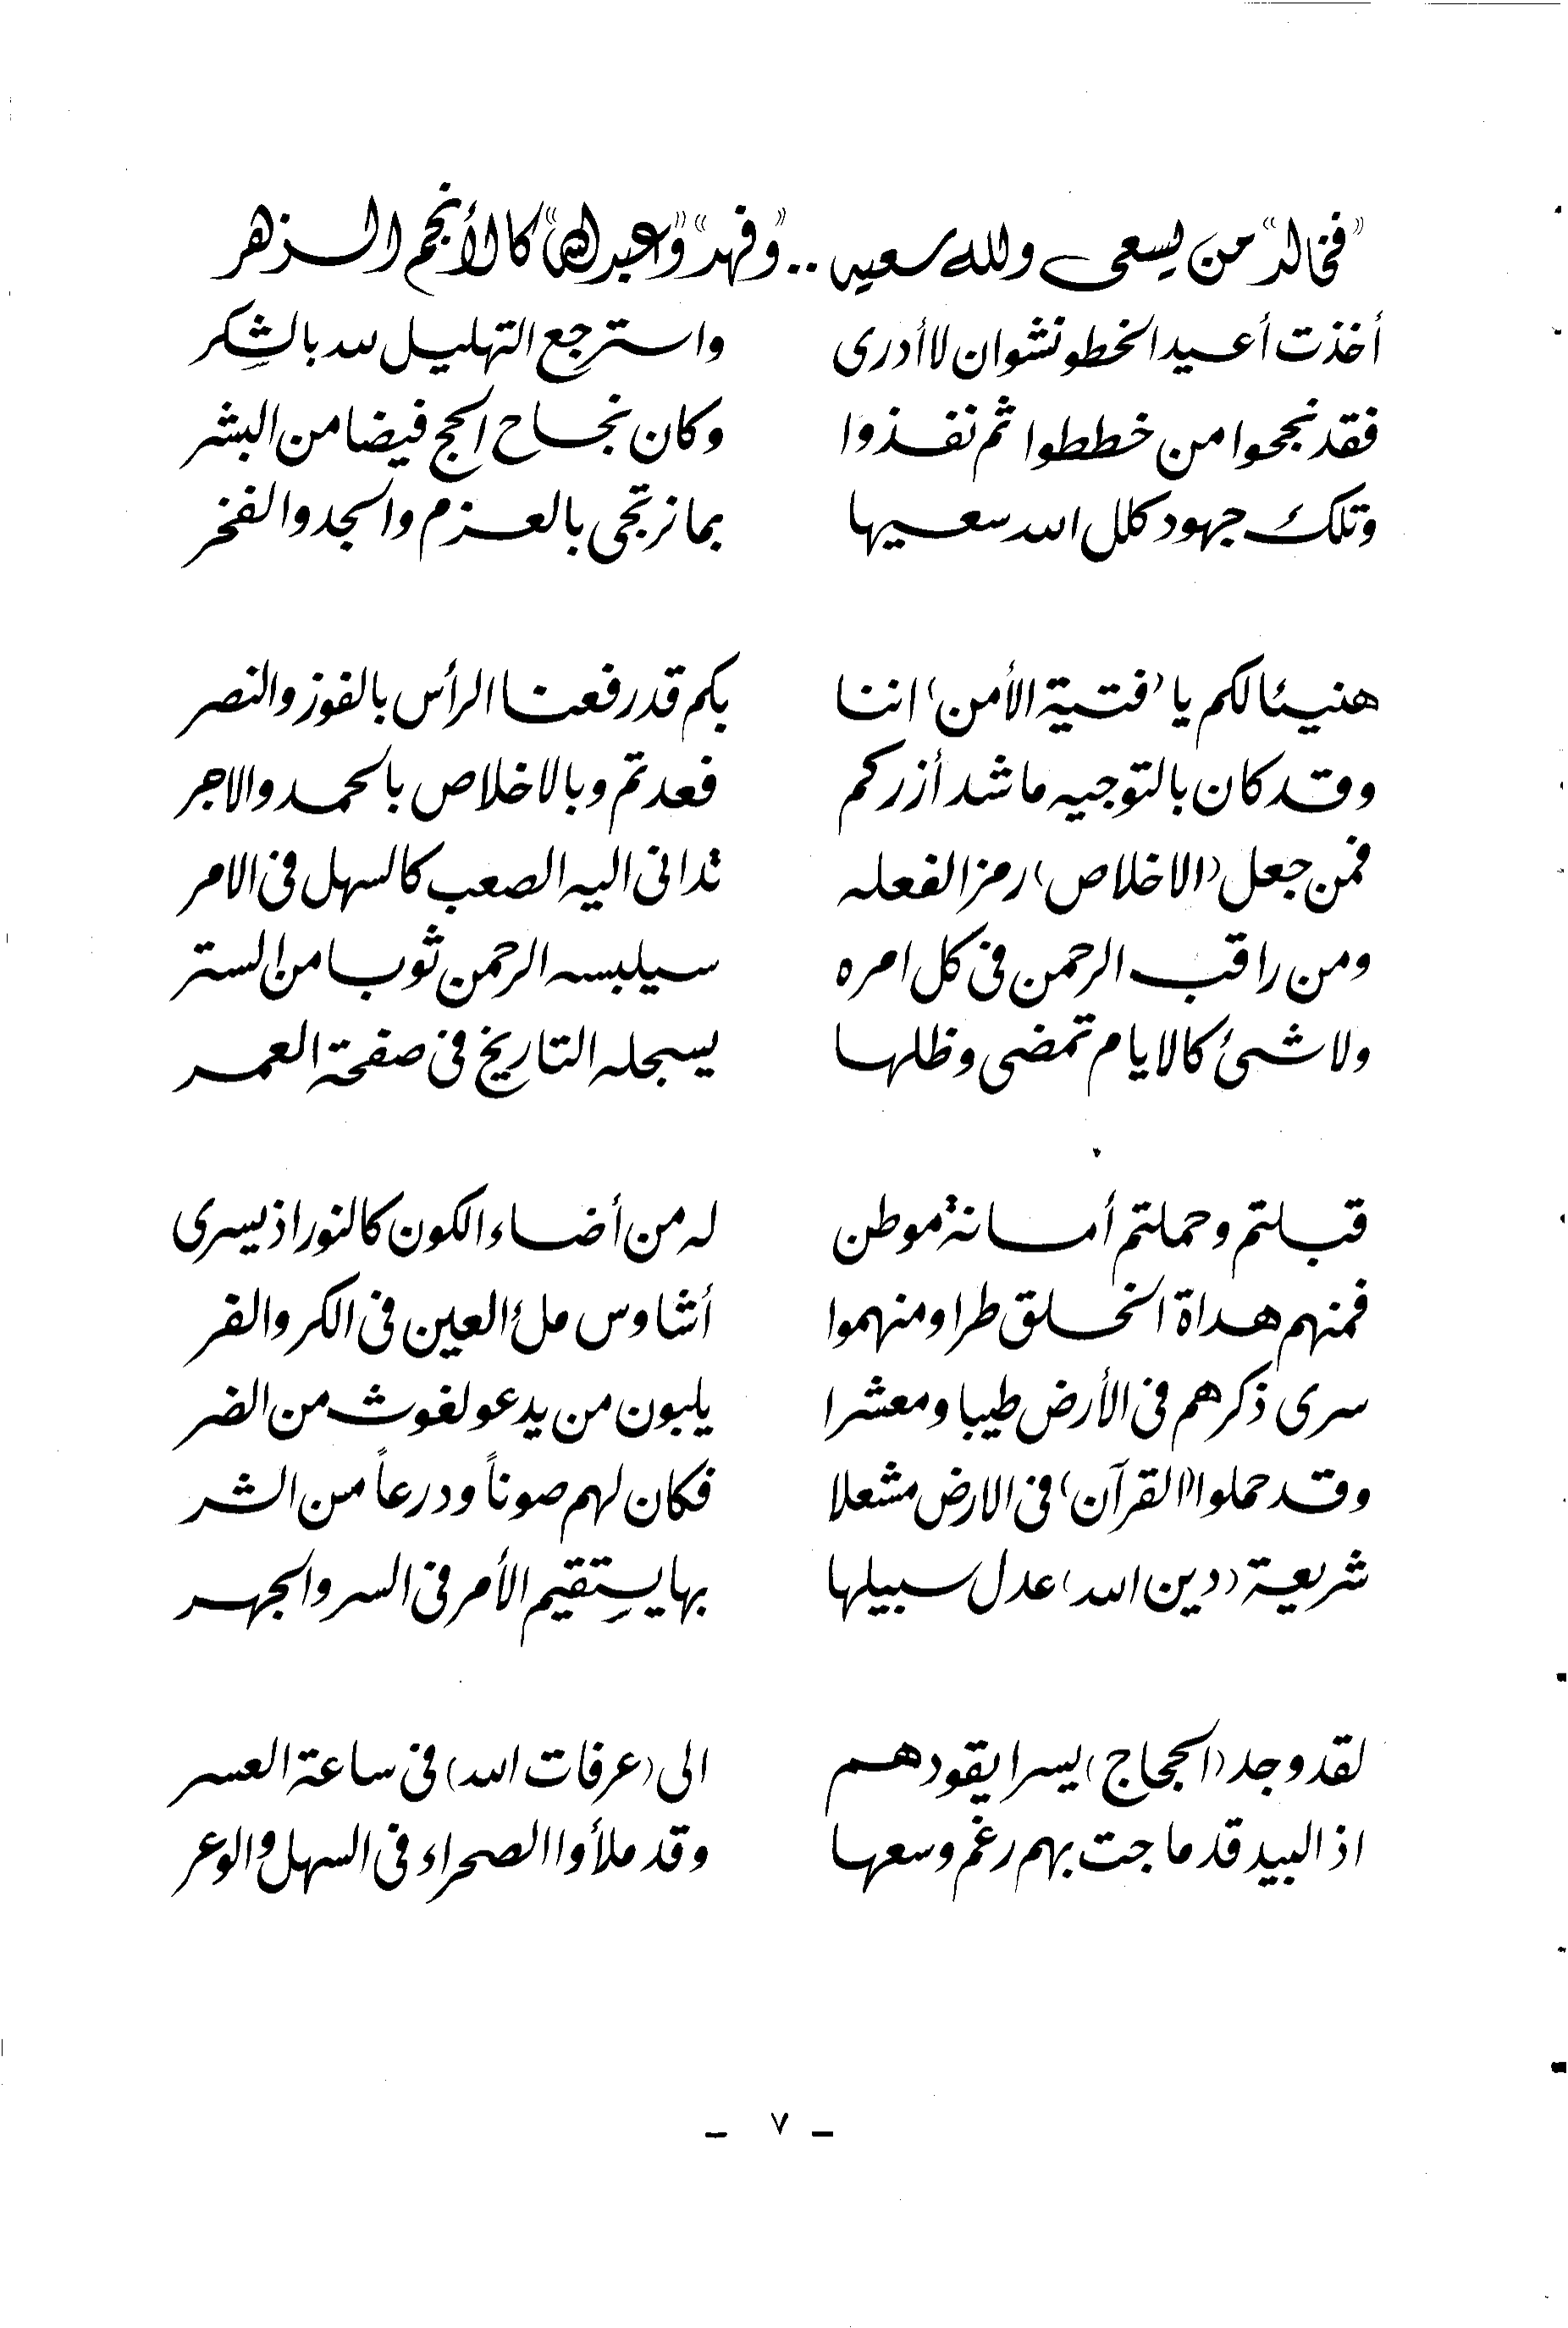 "فخالد" من يسعى ولله سعيه .. "وفهد" و"عبدالله" كالأنجم الـزهر
أخذت أعـيد الخطو نشوان لا أدرى واسترجع التهليـل لله بالشكر
فقد نجحوا من خططوا ثم نفـذوا وكان نجـاح الحج فيضا من البشر
وتلك جهود كلل الله سعـيها بما نرتجى بالعـزم والمجد والفخر
هنيـئا لكم يا (فتـية الأمن) اننا بكم قد رفعنـا الرأس بالفوز والنصر
وقـد كان بالتوجيه ما شد أزركم فعدتم وبالاخلاص بالحمـد والاجر
فمن جعل (الاخلاص) رمزا لفعله تدانى اليه الصعب كالسهل فى الامر
ومن راقب الرحمن فى كل امره سيلبسه الرحمن ثوبـا من الستر
ولا شـئ كالايام تمضى وظلهـا يسجله التاريخ فى صفحة العمـر
قبـلتم وحملتم أمـانة موطن له من أضـاء الكون كالنور اذ يسرى
فمنهم هـداة الخـلق طرا ومنهموا أشاوس ملئ العين فى الكر والفر
سرى ذكرهم فى الأرض طيبا ومعشرا يلبون من يدعو لغوث من الضر
وقـد حملوا (القرآن) فى الارض مشعلا فكان لهم صوناً ودرعاً من الشـر
شريعة (دين الله) عدل سبيلها بها يستقيم الأمر فى السر والجهـر
لقد وجد (الحجاج) يسرا يقودهـم الى (عرفات الله) فى ساعة العسر
اذ البيد قد ماجت بهم رغم وسعهـا وقد ملأوا الصحراء فى السهل والوعر
ـ ٧ ـ